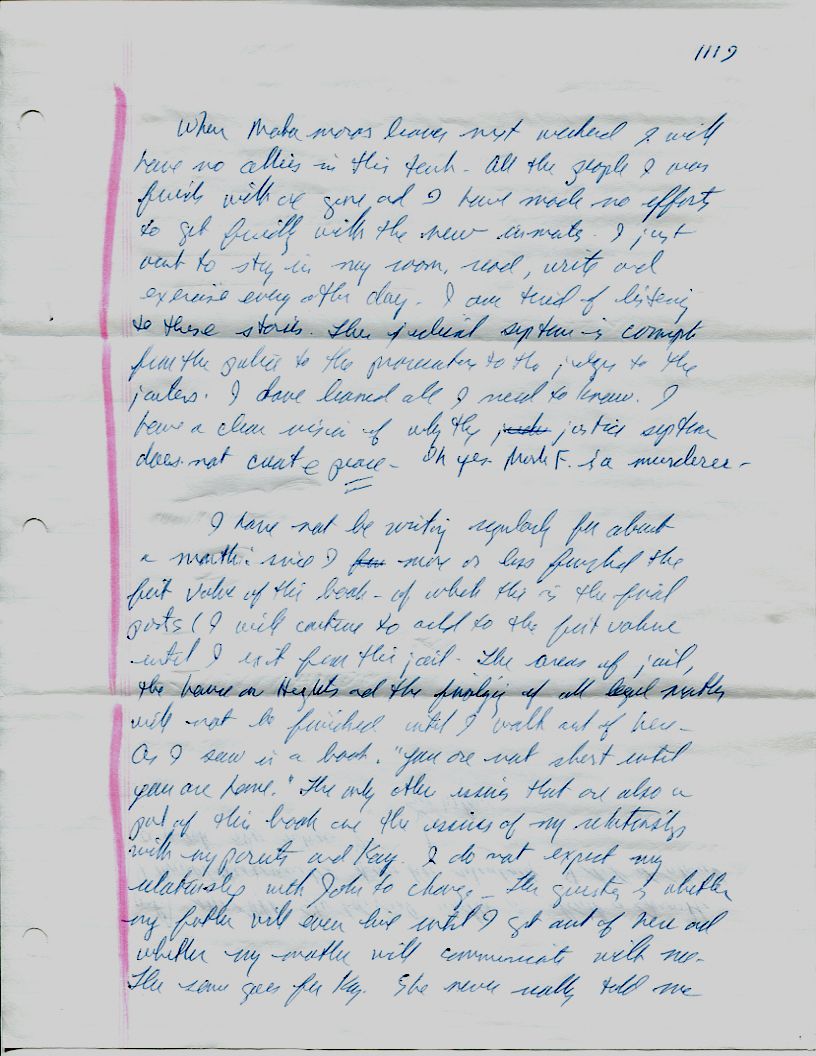 1119
When Matamoros leaves next weekend I will
have no allies in this tank - All the people I was
friends with are gone and I have made no efforts
to get friendly with the new inmates. I just
want to stay in my room, read, write and
exercise every other day - I am tired of listening
to these stories. The judicial system is corrupt
from the police to the prosecutors to the judges to the
jailers. I have learned all I need to know. I
have a clear vision of why the justice system
does not create peace - Oh yes Mark F. is a murderer -
I have not be writing regularly for about
a month. since I more or less finished the
first volume of this book - of which this is the final
posts (I will continue to add to the first volume
until I exit from this jail - The areas of jail,
the house on Heights and the finalizing of all legal matters
will not be finished until I walk out of here -
As I saw in a book. "You are not short until
you are home." The only other issues that are also a
part of this book are the issues of my relationships
with my parents and Kay. I do not expect my
relationship with John to change - The question is whether
my father will even live until I get out of here and
whether my mother will communicate with me -
The same goes for Kay. She never really told me